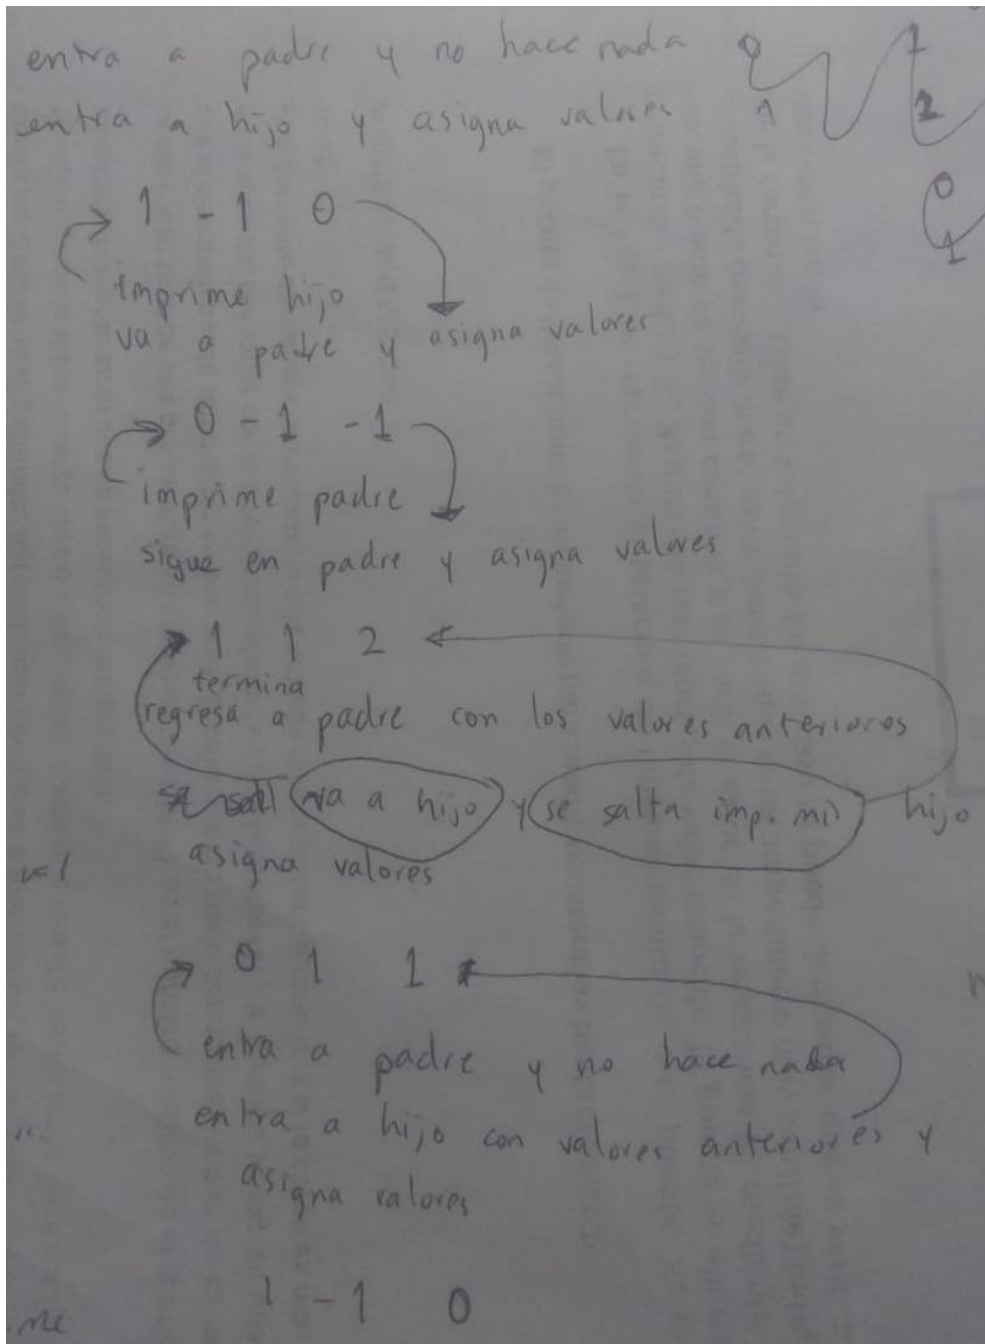 entra a padre y no hace nada
entra a hijo y asigna valores
0 1
1 2
0
1
1 -1 0
imprime hijo
va a padre y asigna valores
0 -1 -1
imprime padre
sigue en padre y asigna valores
1 1 2
termina
regresa a padre con los valores anteriores
va a hijo y se salta imp. mi hijo
asigna valores
0 1 1
entra a padre y no hace nada
entra a hijo con valores anteriores y
asigna valores
1 -1 0
me